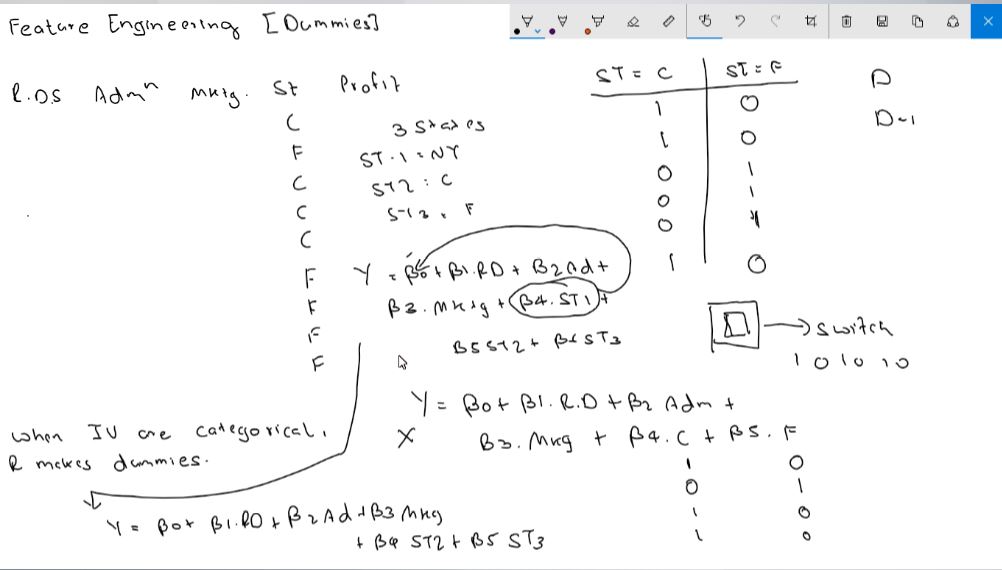 Feature Engineering [Dummies]
R.DS Admⁿ Mktg. St Profit
C
F
C
C
C
F
F
F
F
3 States
ST.1 = NY
ST2 : C
ST3 . F
Y = β0 + β1.RD + β2Ad +
β3.Mktg + β4.ST1 +
β5ST2 + β6ST3
ST = C ST = F
1 0
1 0
0 1
0 1
0 1
1 0
D
D-1
switch
1 0 1 0 1 0
Y = β0 + β1.R.D + β2 Adm +
X β3.Mkg + β4.C + β5.F
1 0
0 1
1 0
1 0
When IV are categorical,
R makes dummies.
Y = β0 + β1.RD + β2Ad + β3Mkg
+ β4 ST2 + β5 ST3